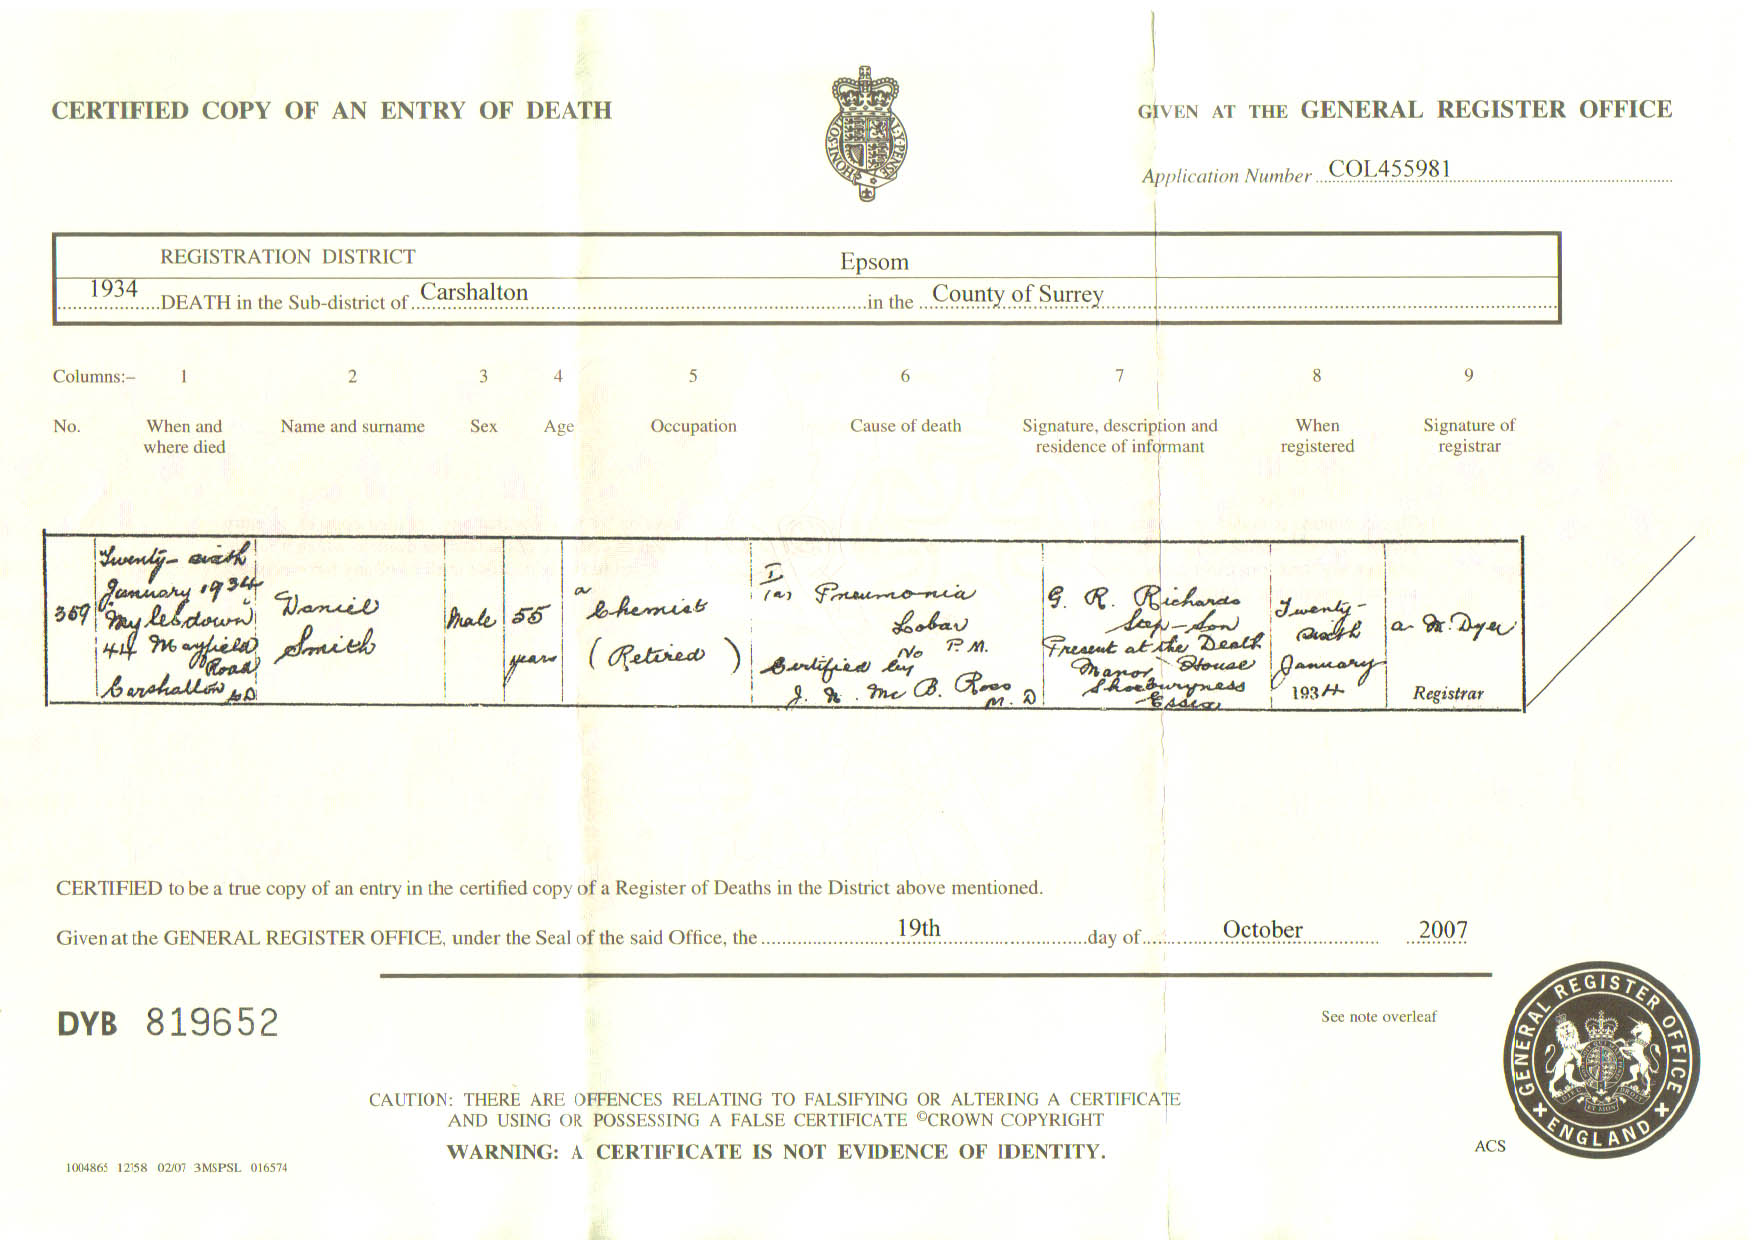 CERTIFIED COPY OF AN ENTRY OF DEATH
HONI·SOI
Y·PENSE
GIVEN AT THE GENERAL REGISTER OFFICE
Application Number COL455981
REGISTRATION DISTRICT Epsom
1934 DEATH in the Sub-district of Carshalton in the County of Surrey
Columns:– 1 2 3 4 5 6 7 8 9
No. When and where died Name and surname Sex Age Occupation Cause of death Signature, description and residence of informant When registered Signature of registrar
359
Twenty-sixth
January 1934
"Mylesdown"
44 Mayfield
Road
Carshalton
Daniel
Smith
Male
55
years
a
Chemist
(Retired)
I
(a) Pneumonia
Lobar
No P.M.
Certified by
J. N. Mc B. Ross
M.D
G. R. Richards
Step-Son
Present at the Death
Manor House
Shoeburyness
Essex
Twenty-
sixth
January
1934
a. M. Dyer
Registrar
CERTIFIED to be a true copy of an entry in the certified copy of a Register of Deaths in the District above mentioned.
Given at the GENERAL REGISTER OFFICE, under the Seal of the said Office, the 19th day of October 2007
DYB 819652
See note overleaf
GENERAL REGISTER OFFICE
ENGLAND
CAUTION: THERE ARE OFFENCES RELATING TO FALSIFYING OR ALTERING A CERTIFICATE
AND USING OR POSSESSING A FALSE CERTIFICATE ©CROWN COPYRIGHT
WARNING: A CERTIFICATE IS NOT EVIDENCE OF IDENTITY.
ACS
1004865 12758 02/07 3MSPSL 016574